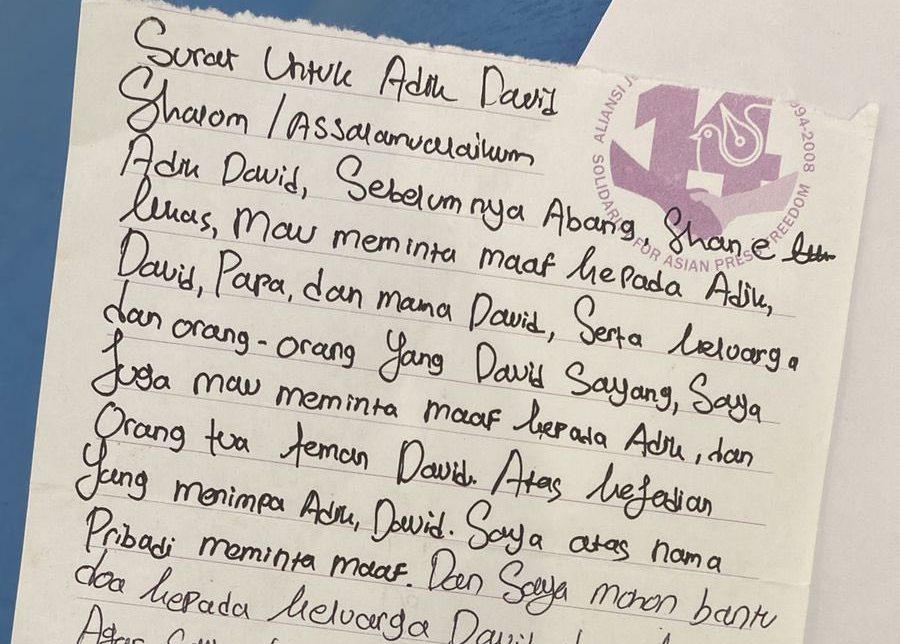 Surat Untuk Adik David
Shalom / Assalamualaikum
Adik David, Sebelumnya Abang, Shane
lukas, Mau meminta maaf kepada Adik,
David, Papa, dan mama David, Serta keluarga
dan orang-orang Yang David Sayang, Saya
Juga mau meminta maaf kepada Adik, dan
Orang tua teman David. Atas kejadian
Yang menimpa Adik, David. Saya atas nama
Pribadi meminta maaf. Dan Saya mohon bantu
doa kepada keluarga David
Agar
ALIANSI J
1994-2008
14
SOLIDARI FOR ASIAN PRESS FREEDOM